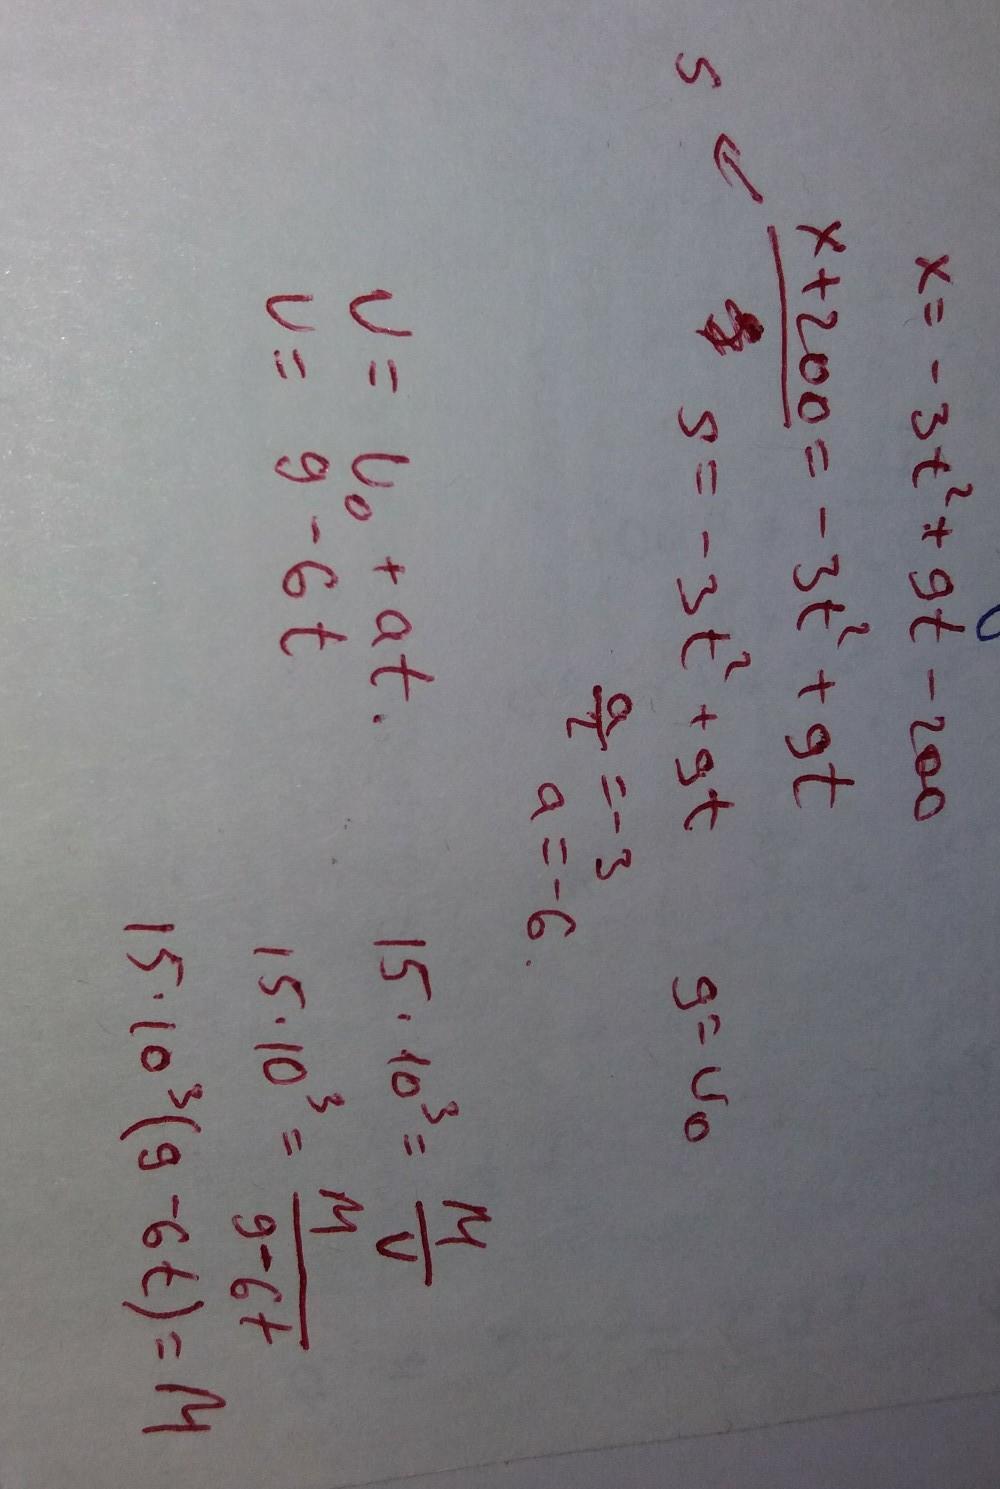 x = -3t² + 9t - 200
x + 200 = -3t² + 9t
s ↙ s = -3t² + 9t 9 = v₀
a/2 = -3
a = -6.
v = v₀ + at.
v = 9 - 6t
15·10³ = M/v
15·10³ = M/(9-6t)
15·10³(9 - 6t) = M